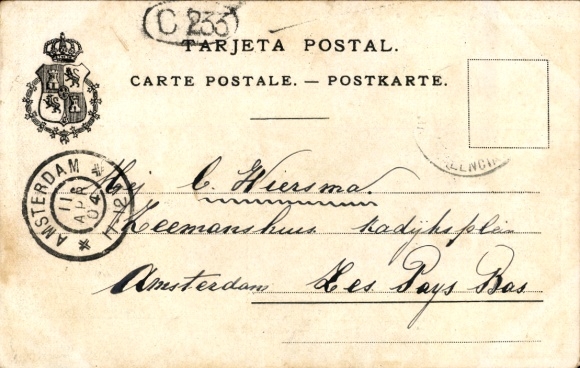 C 233
TARJETA POSTAL.
CARTE POSTALE. — POSTKARTE.
VALENCIA
AMSTERDAM
11 APR 04
C. Wiersma.
Zeemanshuis kadijksplein
Amsterdam Les Pays Bas